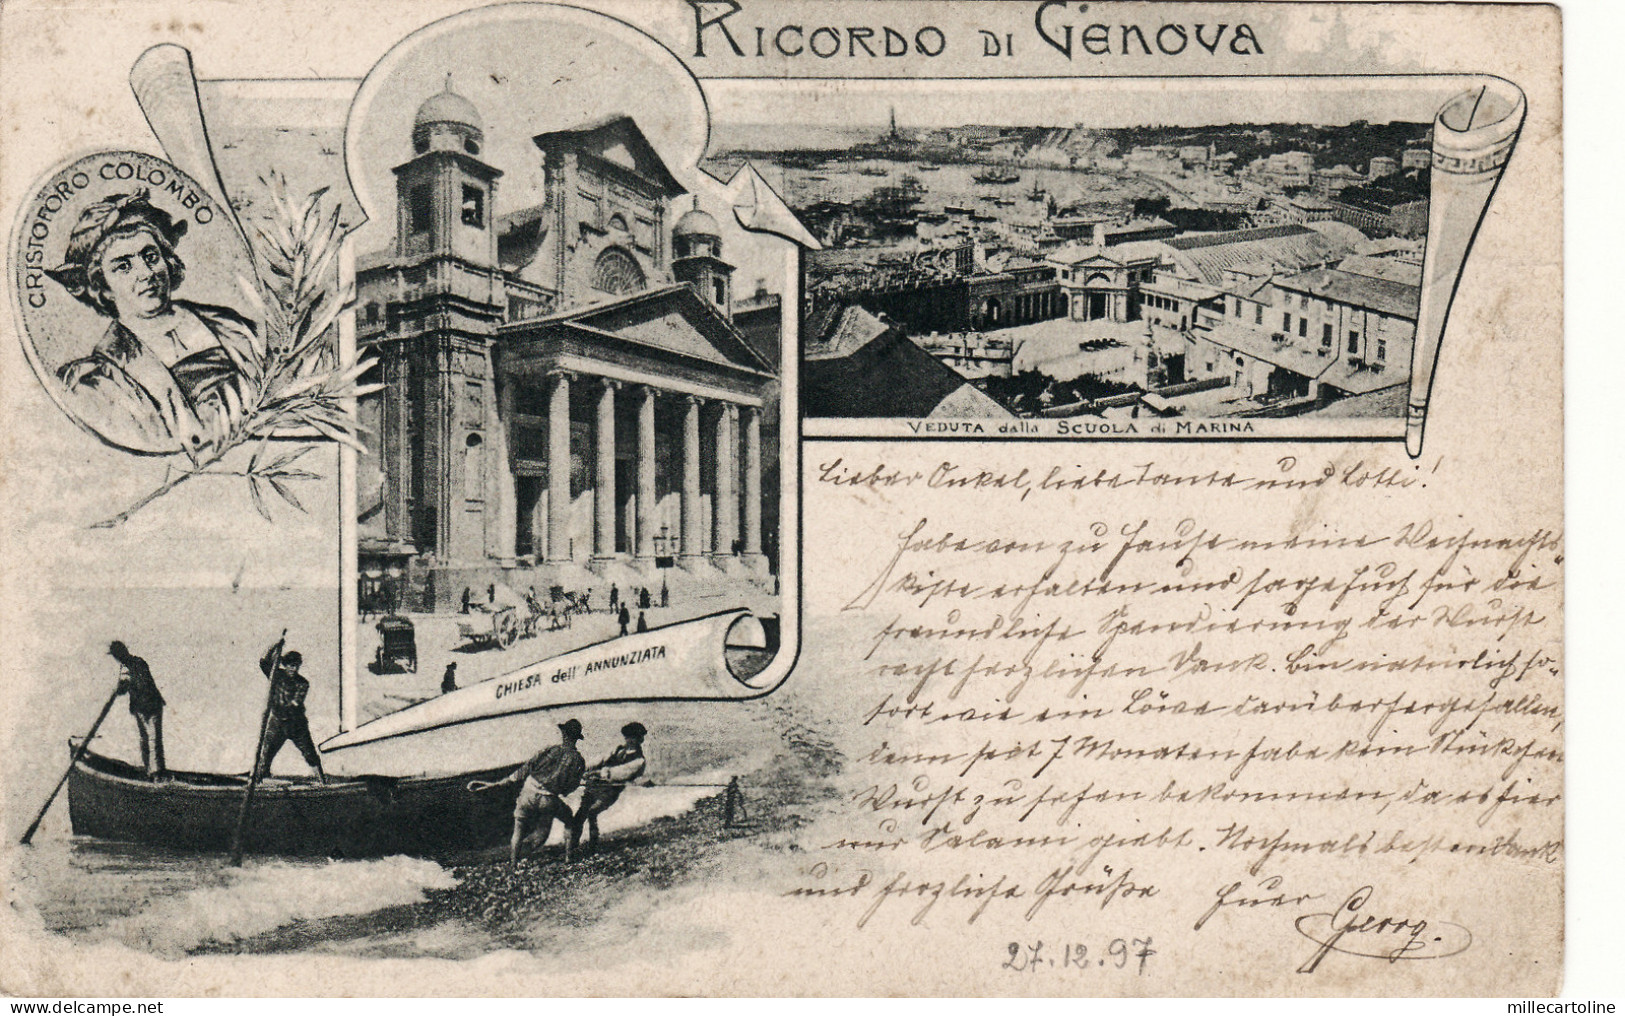 RICORDO DI GENOVA
CRISTOFORO COLOMBO
VEDUTA dalla SCUOLA di MARINA
CHIESA dell' ANNUNZIATA
Lieber Onkel, liebe Tante und Lotti!
Habe von zu Hause meine Weihnachts-
kiste erhalten und sage Euch für die
freundliche Spendierung der Wurst
recht herzlichen Dank. Bin natürlich so-
fort wie ein Löwe darüber hergefallen,
denn seit 7 Monaten habe kein Stückchen
Wurst zu sehen bekommen, da es hier
nur Salami giebt. Nochmals besten Dank
und herzliche Grüße Euer
Georg.
27.12.97
millecartoline